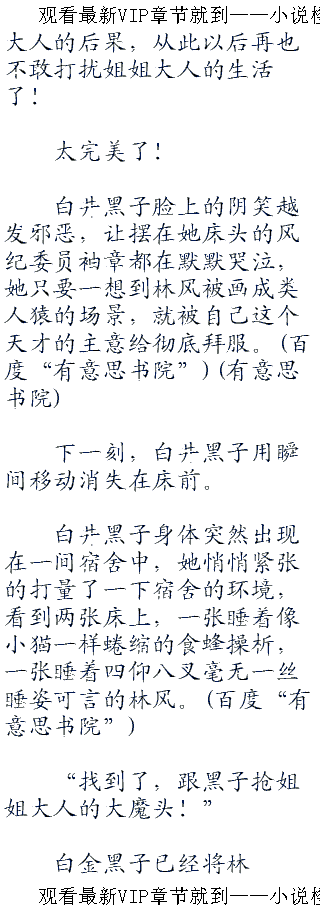 观看最新VIP章节就到——小说榜
大人的后果，从此以后再也
不敢打扰姐姐大人的生活
了！
太完美了！
白井黑子脸上的阴笑越
发邪恶，让摆在她床头的风
纪委员袖章都在默默哭泣，
她只要一想到林风被画成类
人猿的场景，就被自己这个
天才的主意给彻底拜服。（百
度“有意思书院”）（有意思
书院）
下一刻，白井黑子用瞬
间移动消失在床前。
白井黑子身体突然出现
在一间宿舍中，她悄悄紧张
的打量了一下宿舍的环境，
看到两张床上，一张睡着像
小猫一样蜷缩的食蜂操析，
一张睡着四仰八叉毫无一丝
睡姿可言的林风。（百度“有
意思书院”）
“找到了，跟黑子抢姐
姐大人的大魔头！”
白金黑子已经将林
观看最新VIP章节就到——小说